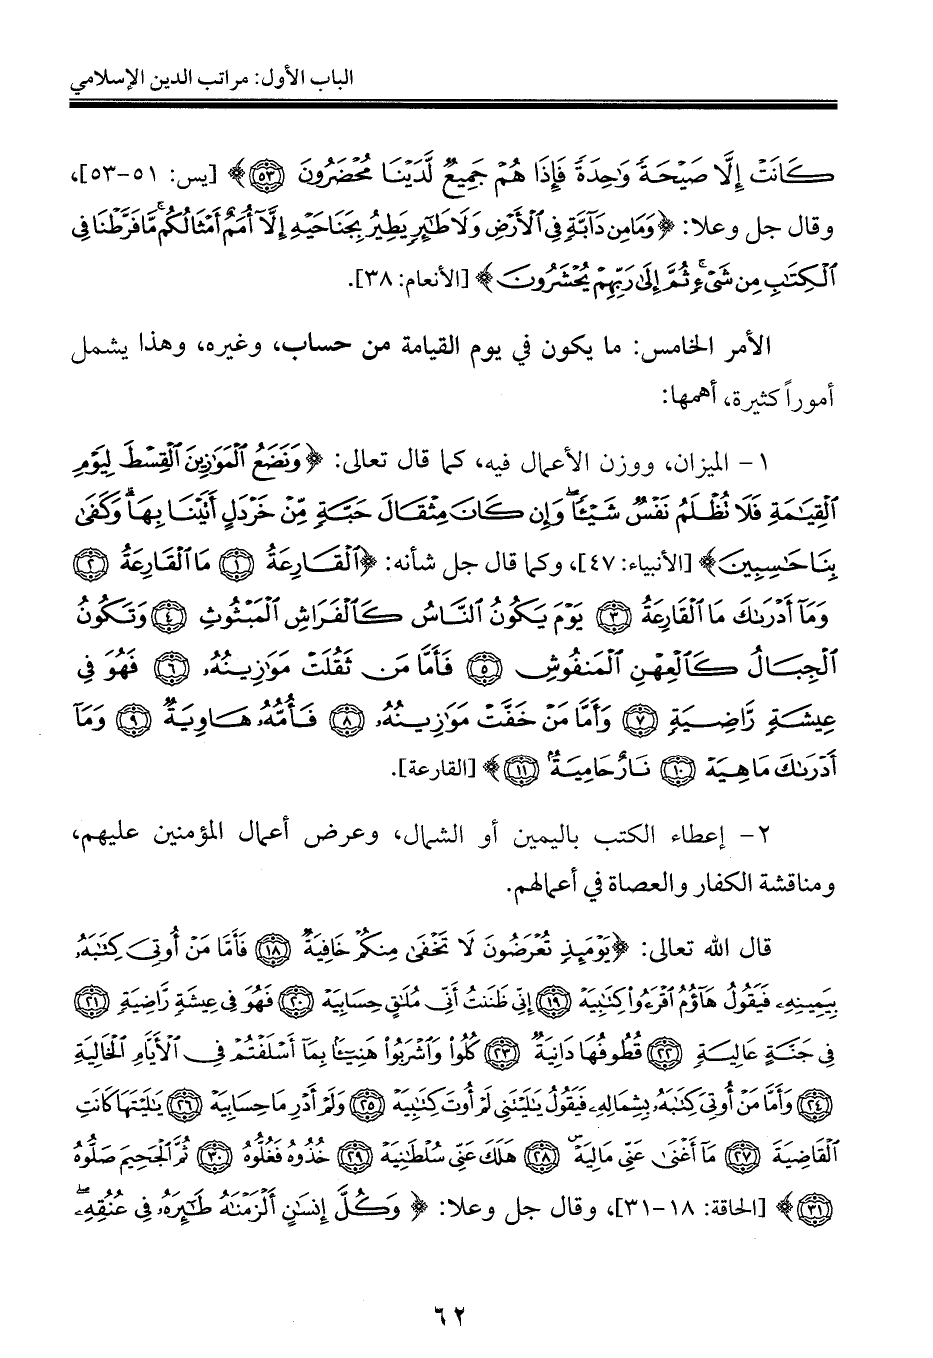 الباب الأول: مراتب الدين الإسلامي
كَانَتْ إِلَّا صَيْحَةً وَٰحِدَةً فَإِذَا هُمْ جَمِيعٌ لَّدَيْنَا مُحْضَرُونَ ﴿٥٣﴾﴾ [يس: ٥١-٥٣]،
وقال جل وعلا: ﴿وَمَا مِن دَآبَّةٍ فِي ٱلْأَرْضِ وَلَا طَٰٓئِرٍ يَطِيرُ بِجَنَاحَيْهِ إِلَّآ أُمَمٌ أَمْثَالُكُم ۚ مَّا فَرَّطْنَا فِي
ٱلْكِتَٰبِ مِن شَيْءٍ ۚ ثُمَّ إِلَىٰ رَبِّهِمْ يُحْشَرُونَ﴾ [الأنعام: ٣٨].
الأمر الخامس: ما يكون في يوم القيامة من حساب، وغيره، وهذا يشمل
أموراً كثيرة، أهمها:
١- الميزان، ووزن الأعمال فيه، كما قال تعالى: ﴿وَنَضَعُ ٱلْمَوَٰزِينَ ٱلْقِسْطَ لِيَوْمِ
ٱلْقِيَٰمَةِ فَلَا تُظْلَمُ نَفْسٌ شَيْـًٔا ۖ وَإِن كَانَ مِثْقَالَ حَبَّةٍ مِّنْ خَرْدَلٍ أَتَيْنَا بِهَا ۗ وَكَفَىٰ
بِنَا حَٰسِبِينَ﴾ [الأنبياء: ٤٧]، وكما قال جل شأنه: ﴿ٱلْقَارِعَةُ ﴿١﴾ مَا ٱلْقَارِعَةُ ﴿٢﴾
وَمَآ أَدْرَىٰكَ مَا ٱلْقَارِعَةُ ﴿٣﴾ يَوْمَ يَكُونُ ٱلنَّاسُ كَٱلْفَرَاشِ ٱلْمَبْثُوثِ ﴿٤﴾ وَتَكُونُ
ٱلْجِبَالُ كَٱلْعِهْنِ ٱلْمَنفُوشِ ﴿٥﴾ فَأَمَّا مَن ثَقُلَتْ مَوَٰزِينُهُۥ ﴿٦﴾ فَهُوَ فِي
عِيشَةٍ رَّاضِيَةٍ ﴿٧﴾ وَأَمَّا مَنْ خَفَّتْ مَوَٰزِينُهُۥ ﴿٨﴾ فَأُمُّهُۥ هَاوِيَةٌ ﴿٩﴾ وَمَآ
أَدْرَىٰكَ مَا هِيَهْ ﴿١٠﴾ نَارٌ حَامِيَةٌۢ ﴿١١﴾﴾ [القارعة].
٢- إعطاء الكتب باليمين أو الشمال، وعرض أعمال المؤمنين عليهم،
ومناقشة الكفار والعصاة في أعمالهم.
قال الله تعالى: ﴿يَوْمَئِذٍ تُعْرَضُونَ لَا تَخْفَىٰ مِنكُمْ خَافِيَةٌ ﴿١٨﴾ فَأَمَّا مَنْ أُوتِيَ كِتَٰبَهُۥ
بِيَمِينِهِۦ فَيَقُولُ هَآؤُمُ ٱقْرَءُوا۟ كِتَٰبِيَهْ ﴿١٩﴾ إِنِّي ظَنَنتُ أَنِّي مُلَٰقٍ حِسَابِيَهْ ﴿٢٠﴾ فَهُوَ فِي عِيشَةٍ رَّاضِيَةٍ ﴿٢١﴾
فِي جَنَّةٍ عَالِيَةٍ ﴿٢٢﴾ قُطُوفُهَا دَانِيَةٌ ﴿٢٣﴾ كُلُوا۟ وَٱشْرَبُوا۟ هَنِيٓـًٔۢا بِمَآ أَسْلَفْتُمْ فِي ٱلْأَيَّامِ ٱلْخَالِيَةِ
﴿٢٤﴾ وَأَمَّا مَنْ أُوتِيَ كِتَٰبَهُۥ بِشِمَالِهِۦ فَيَقُولُ يَٰلَيْتَنِي لَمْ أُوتَ كِتَٰبِيَهْ ﴿٢٥﴾ وَلَمْ أَدْرِ مَا حِسَابِيَهْ ﴿٢٦﴾ يَٰلَيْتَهَا كَانَتِ
ٱلْقَاضِيَةَ ﴿٢٧﴾ مَآ أَغْنَىٰ عَنِّي مَالِيَهْ ۜ ﴿٢٨﴾ هَلَكَ عَنِّي سُلْطَٰنِيَهْ ﴿٢٩﴾ خُذُوهُ فَغُلُّوهُ ﴿٣٠﴾ ثُمَّ ٱلْجَحِيمَ صَلُّوهُ
﴿٣١﴾﴾ [الحاقة: ١٨-٣١]، وقال جل وعلا: ﴿ وَكُلَّ إِنسَٰنٍ أَلْزَمْنَٰهُ طَٰٓئِرَهُۥ فِي عُنُقِهِۦ ۖ
٦٢